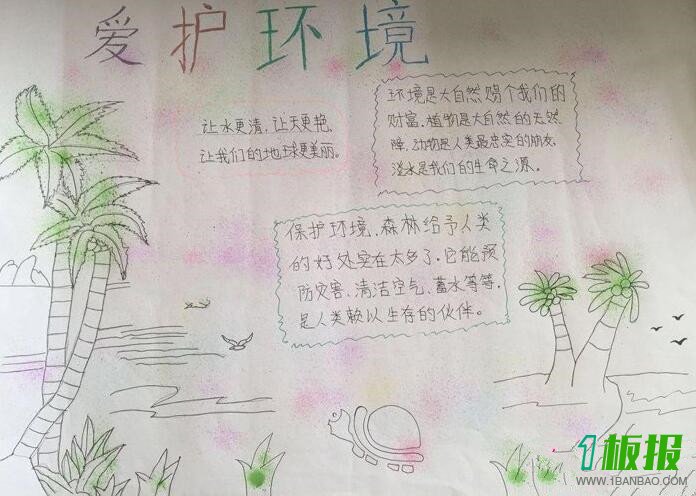 爱护环境
让水更清，让天更艳，
让我们的地球更美丽。
环境是大自然赐个我们的
财富，植物是大自然的天然
障，动物是人类最忠实的朋友，
淡水是我们的生命之源。
保护环境，森林给予人类
的好处实在太多了，它能预
防灾害、清洁空气、蓄水等等，
是人类赖以生存的伙伴。
1板报
WWW.1BANBAO.COM